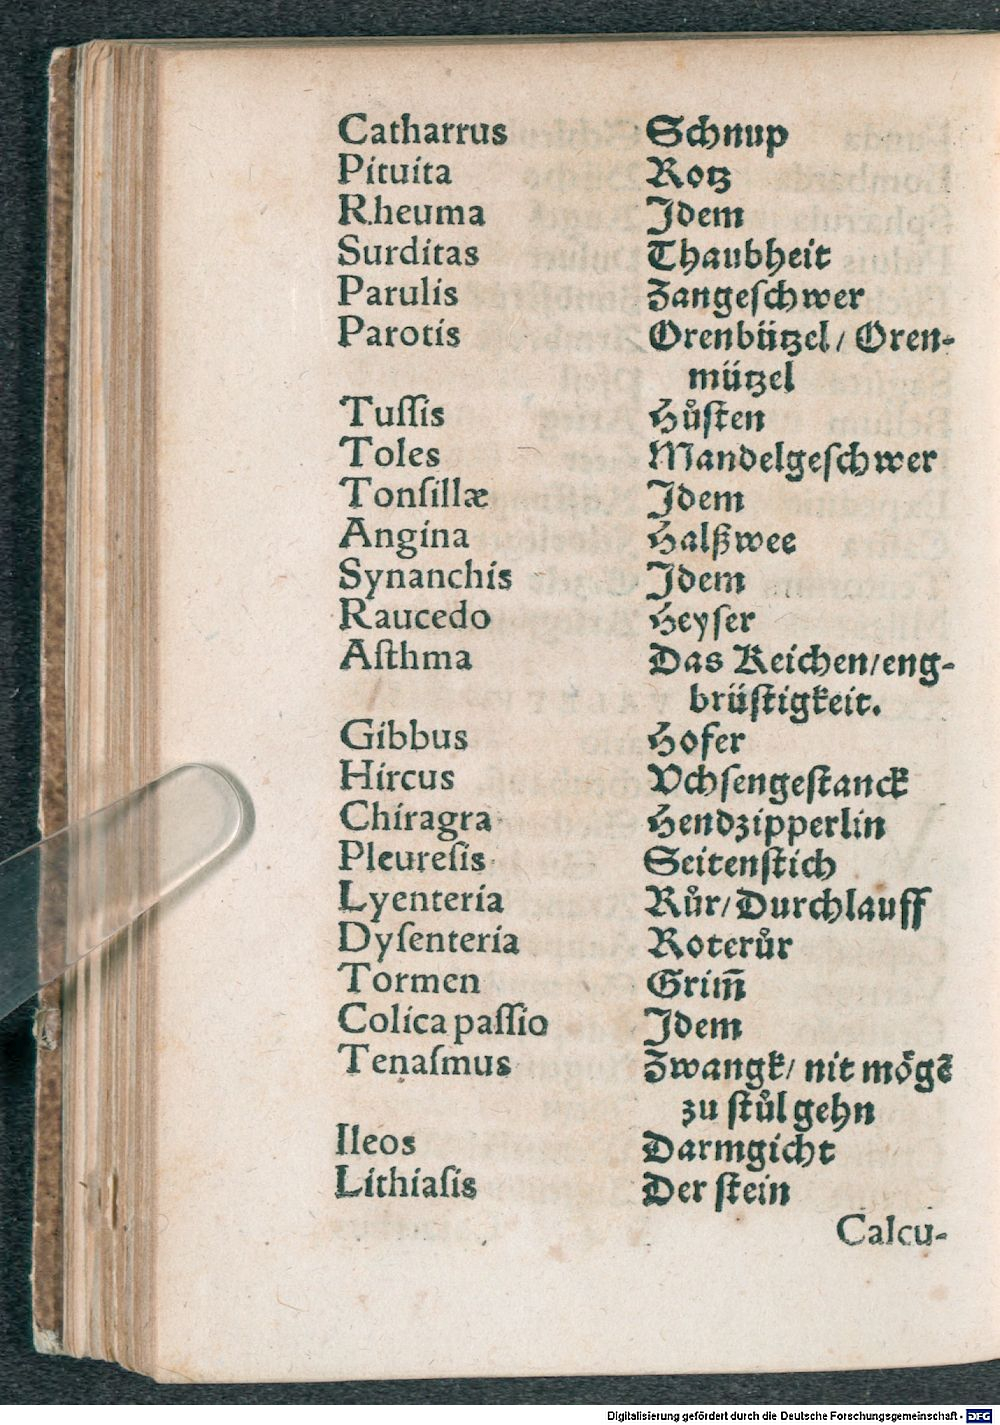 Catharrus Schnup
Pituita Rotz
Rheuma Idem
Surditas Thaubheit
Parulis Zangeſchwer
Parotis Orenbützel/ Oren-
mützel
Tuſſis Hůſten
Toles Mandelgeſchwer
Tonſillæ Idem
Angina Halßwee
Synanchis Idem
Raucedo Heyſer
Aſthma Das Keichen/eng-
brüſtigkeit.
Gibbus Hofer
Hircus Vchſengeſtanck
Chiragra Hendzipperlin
Pleureſis Seitenſtich
Lyenteria Růr/Durchlauff
Dyſenteria Roterůr
Tormen Grim̃
Colica paſſio Idem
Tenaſmus Zwangk/ nit mögẽ
zu ſtůl gehn
Ileos Darmgicht
Lithiaſis Der ſtein
Calcu-
Digitalisierung gefördert durch die Deutsche Forschungsgemeinschaft - DFG